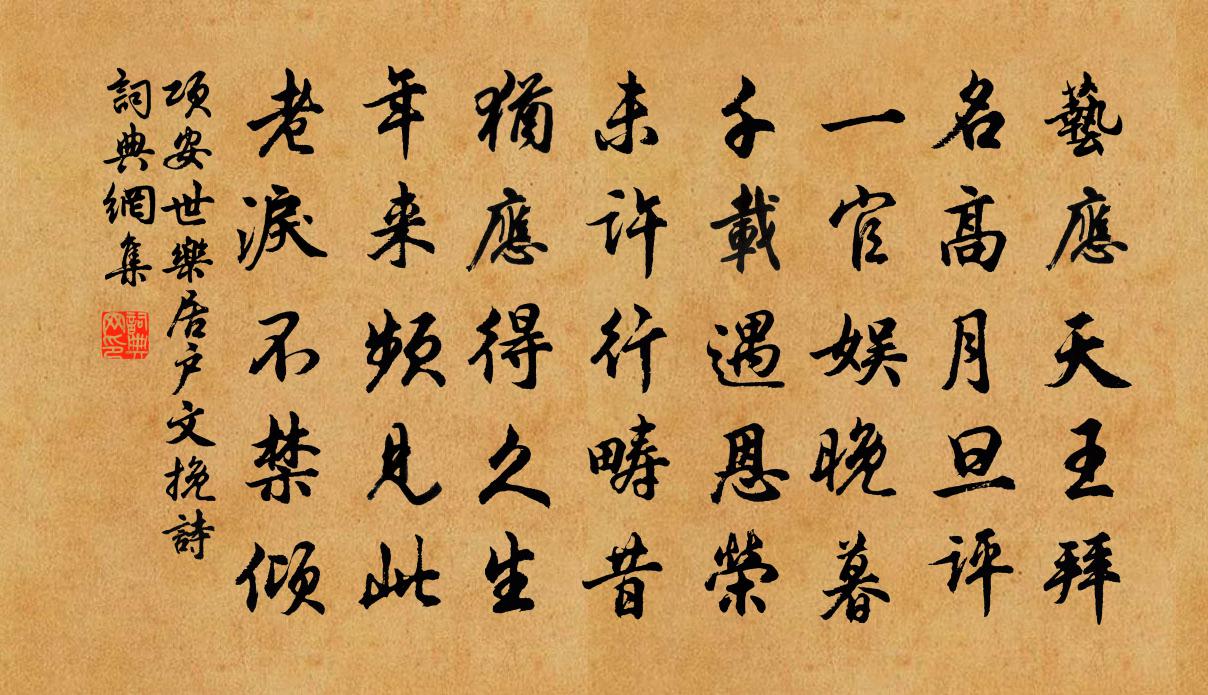 藝應天王拜
名高月旦評
一官娱晚暮
千載遇恩榮
未許行疇昔
猶應得久生
年来頻見此
老淚不禁傾
項安世樂居户文挽詩
詞典網集
詞典
网印